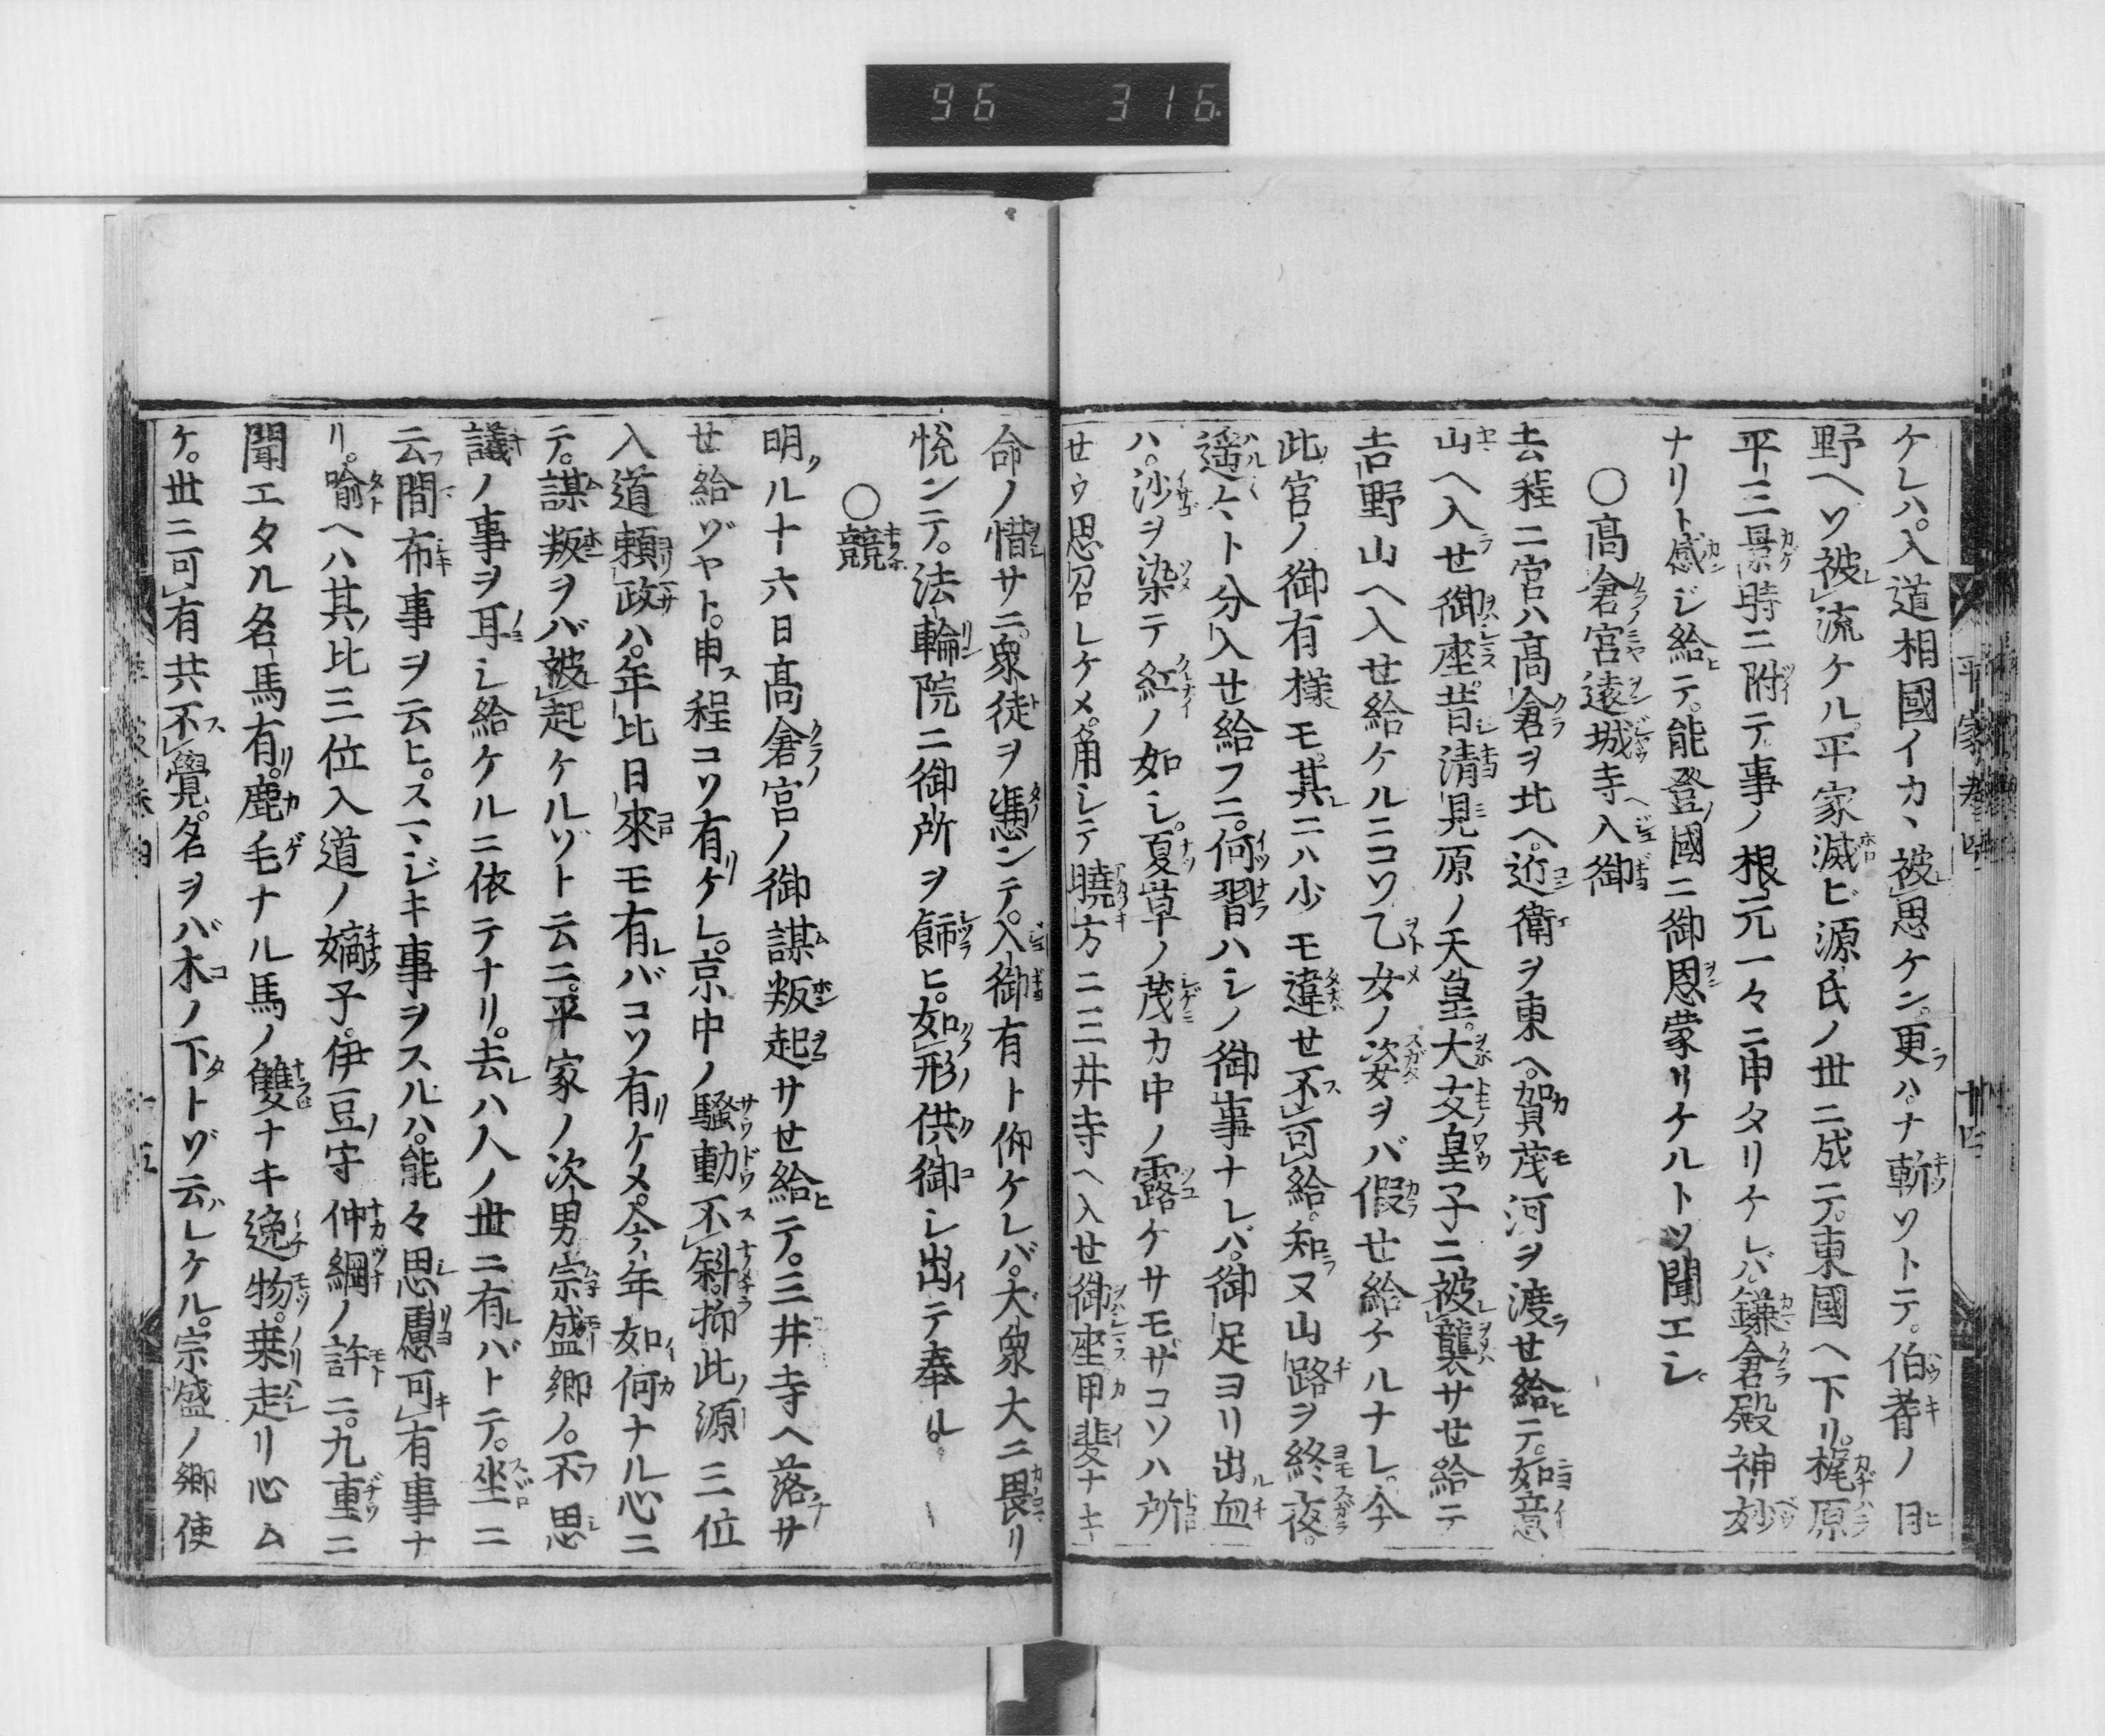 96 316
ケレハ。入道相國イカヽ被思ケン。更ハ。ナ斬ソトテ。伯耆ノ日
野ヘソ被流ケル。平家滅ビ源氏ノ世ニ成テ。東國ヘ下リ。梶原
平三景時ニ附テ事ノ根元一々ニ申タリケレバ。鎌倉殿神妙
ナリト感ジ給テ。能登國ニ御恩蒙リケルトソ聞エシ
○高倉宮遠城寺入御
去程ニ宮ハ高倉ヲ北ヘ。近衛ヲ東ヘ。賀茂河ヲ渡セ給テ。如意
山ヘ入セ御座。昔清見原ノ天皇。大友皇子ニ被襲サセ給テ
吉野山ヘ入セ給ケルニコソ乙女ノ姿ヲバ假セ給ケルナレ。今
此宮ノ御有様モ。其ニハ少モ違セ不可給。知ヌ山路ヲ終夜。
遥々ト分入セ給フニ。何習ハシノ御事ナレバ。御足ヨリ出血
ハ。沙ヲ染テ紅ノ如シ。夏草ノ茂カ中ノ露ケサモ。サコソハ所
セウ思召レケメ。角シテ曉方ニ三井寺ヘ入セ御座甲斐ナキ
命ノ惜サニ。衆徒ヲ憑ンテ。入御有ト仰ケレバ。大衆大ニ畏リ
悦ンテ。法輪院ニ御所ヲ餝ヒ。如形供御シ出テ奉ル。
○競
明ル十六日高倉宮ノ御謀叛起サセ給テ。三井寺ヘ落サ
セ給ヅヤト。申程コソ有ケレ。京中ノ騒動不斜。抑此源三位
入道頼政ハ。年比日來モ有レバコソ有ケメ。今年如何ナル心ニ
テ。謀叛ヲバ被起ケルゾト云ニ。平家ノ次男宗盛卿ノ。不思
議ノ事ヲ耳シ給ケルニ依テナリ。去ハ人ノ世ニ有バトテ。坐ニ
云間布事ヲ云ヒ。スマジキ事ヲスルハ。能々思慮可有事ナ
リ。喩ヘハ其比三位入道ノ嫡子。伊豆守仲綱ノ許ニ。九重ニ
聞エタル名馬有。鹿毛ナル馬ノ雙ナキ逸物。乗走リ心ム
ケ。世ニ可有共不覺。名ヲバ木ノ下トゾ云レケル。宗盛ノ卿使